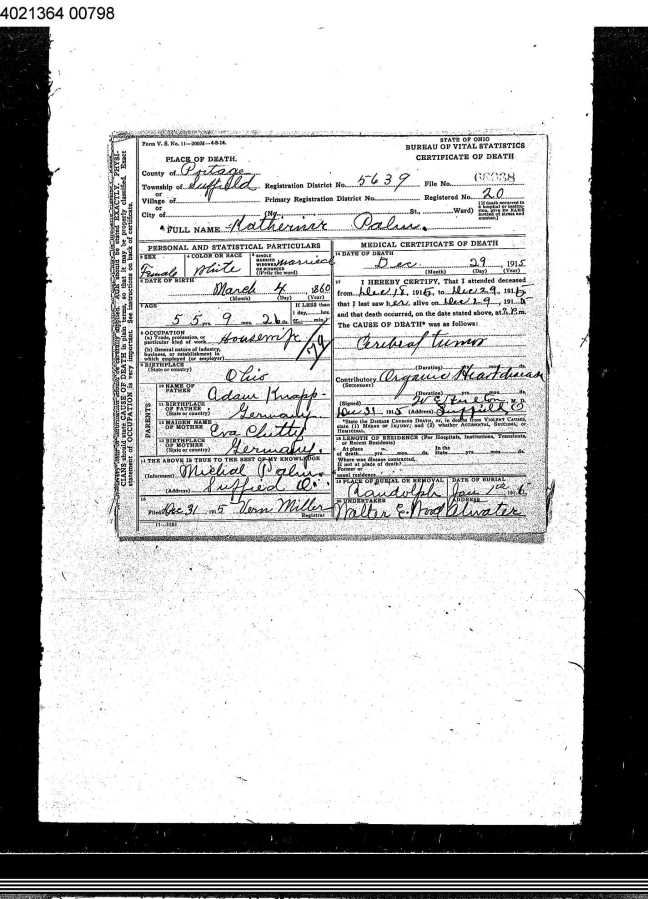 4021364 00798
Form V. S. No. 11—200M—4-8-14.
STATE OF OHIO
BUREAU OF VITAL STATISTICS
CERTIFICATE OF DEATH
PLACE OF DEATH.
County of Portage
Township of Suffield Registration District No. 5639 File No.
or
Village of Primary Registration District No. Registered No. 20
or
City of (No. St., Ward)
FULL NAME Katherine Palm.
PERSONAL AND STATISTICAL PARTICULARS
3 SEX Female
4 COLOR OR RACE White
5 SINGLE MARRIED WIDOWED OR DIVORCED (Write the word) Married
6 DATE OF BIRTH
March 4, 1860
(Month) (Day) (Year)
7 AGE
55 yrs. 9 mos. 26 ds.
If LESS than
1 day, hrs.
or min.
8 OCCUPATION
(a) Trade, profession, or
particular kind of work Housewife
(b) General nature of industry,
business, or establishment in
which employed (or employer)
9 BIRTHPLACE
(State or country) Ohio
PARENTS
10 NAME OF
FATHER Adam Knapp
11 BIRTHPLACE
OF FATHER
(State or country) Germany
12 MAIDEN NAME
OF MOTHER Eva
13 BIRTHPLACE
OF MOTHER
(State or country) Germany
14 THE ABOVE IS TRUE TO THE BEST OF MY KNOWLEDGE
(Informant) Micheal Palm
(Address) Suffied O.
15
Filed Dec 31 1915 Vern Miller
Registrar
11—3181
MEDICAL CERTIFICATE OF DEATH
16 DATE OF DEATH
Dec 29, 1915
(Month) (Day) (Year)
17 I HEREBY CERTIFY, That I attended deceased
from Dec 18, 1915, to Dec 29, 1915,
that I last saw her alive on Dec 29, 191
and that death occurred, on the date stated above, at P.m.
The CAUSE OF DEATH* was as follows:
Cerebral tumor
(Duration) ds.
Contributory Organic Heart disease
(Secondary)
(Duration) yrs. mos. ds.
(Signed) M. D.
Dec 31, 1915 (Address) Suffield O
*State the Disease Causing Death, or, in deaths from Violent Causes,
state (1) Means of Injury; and (2) whether Accidental, Suicidal, or
Homicidal.
18 LENGTH OF RESIDENCE (For Hospitals, Institutions, Transients,
or Recent Residents)
At place In the
of death yrs. mos. ds. State yrs. mos. ds.
Where was disease contracted,
if not at place of death?
Former or
usual residence
19 PLACE OF BURIAL OR REMOVAL DATE OF BURIAL
Randolph Jan 1st 1916
20 UNDERTAKER ADDRESS
Walter E. Wood Atwater